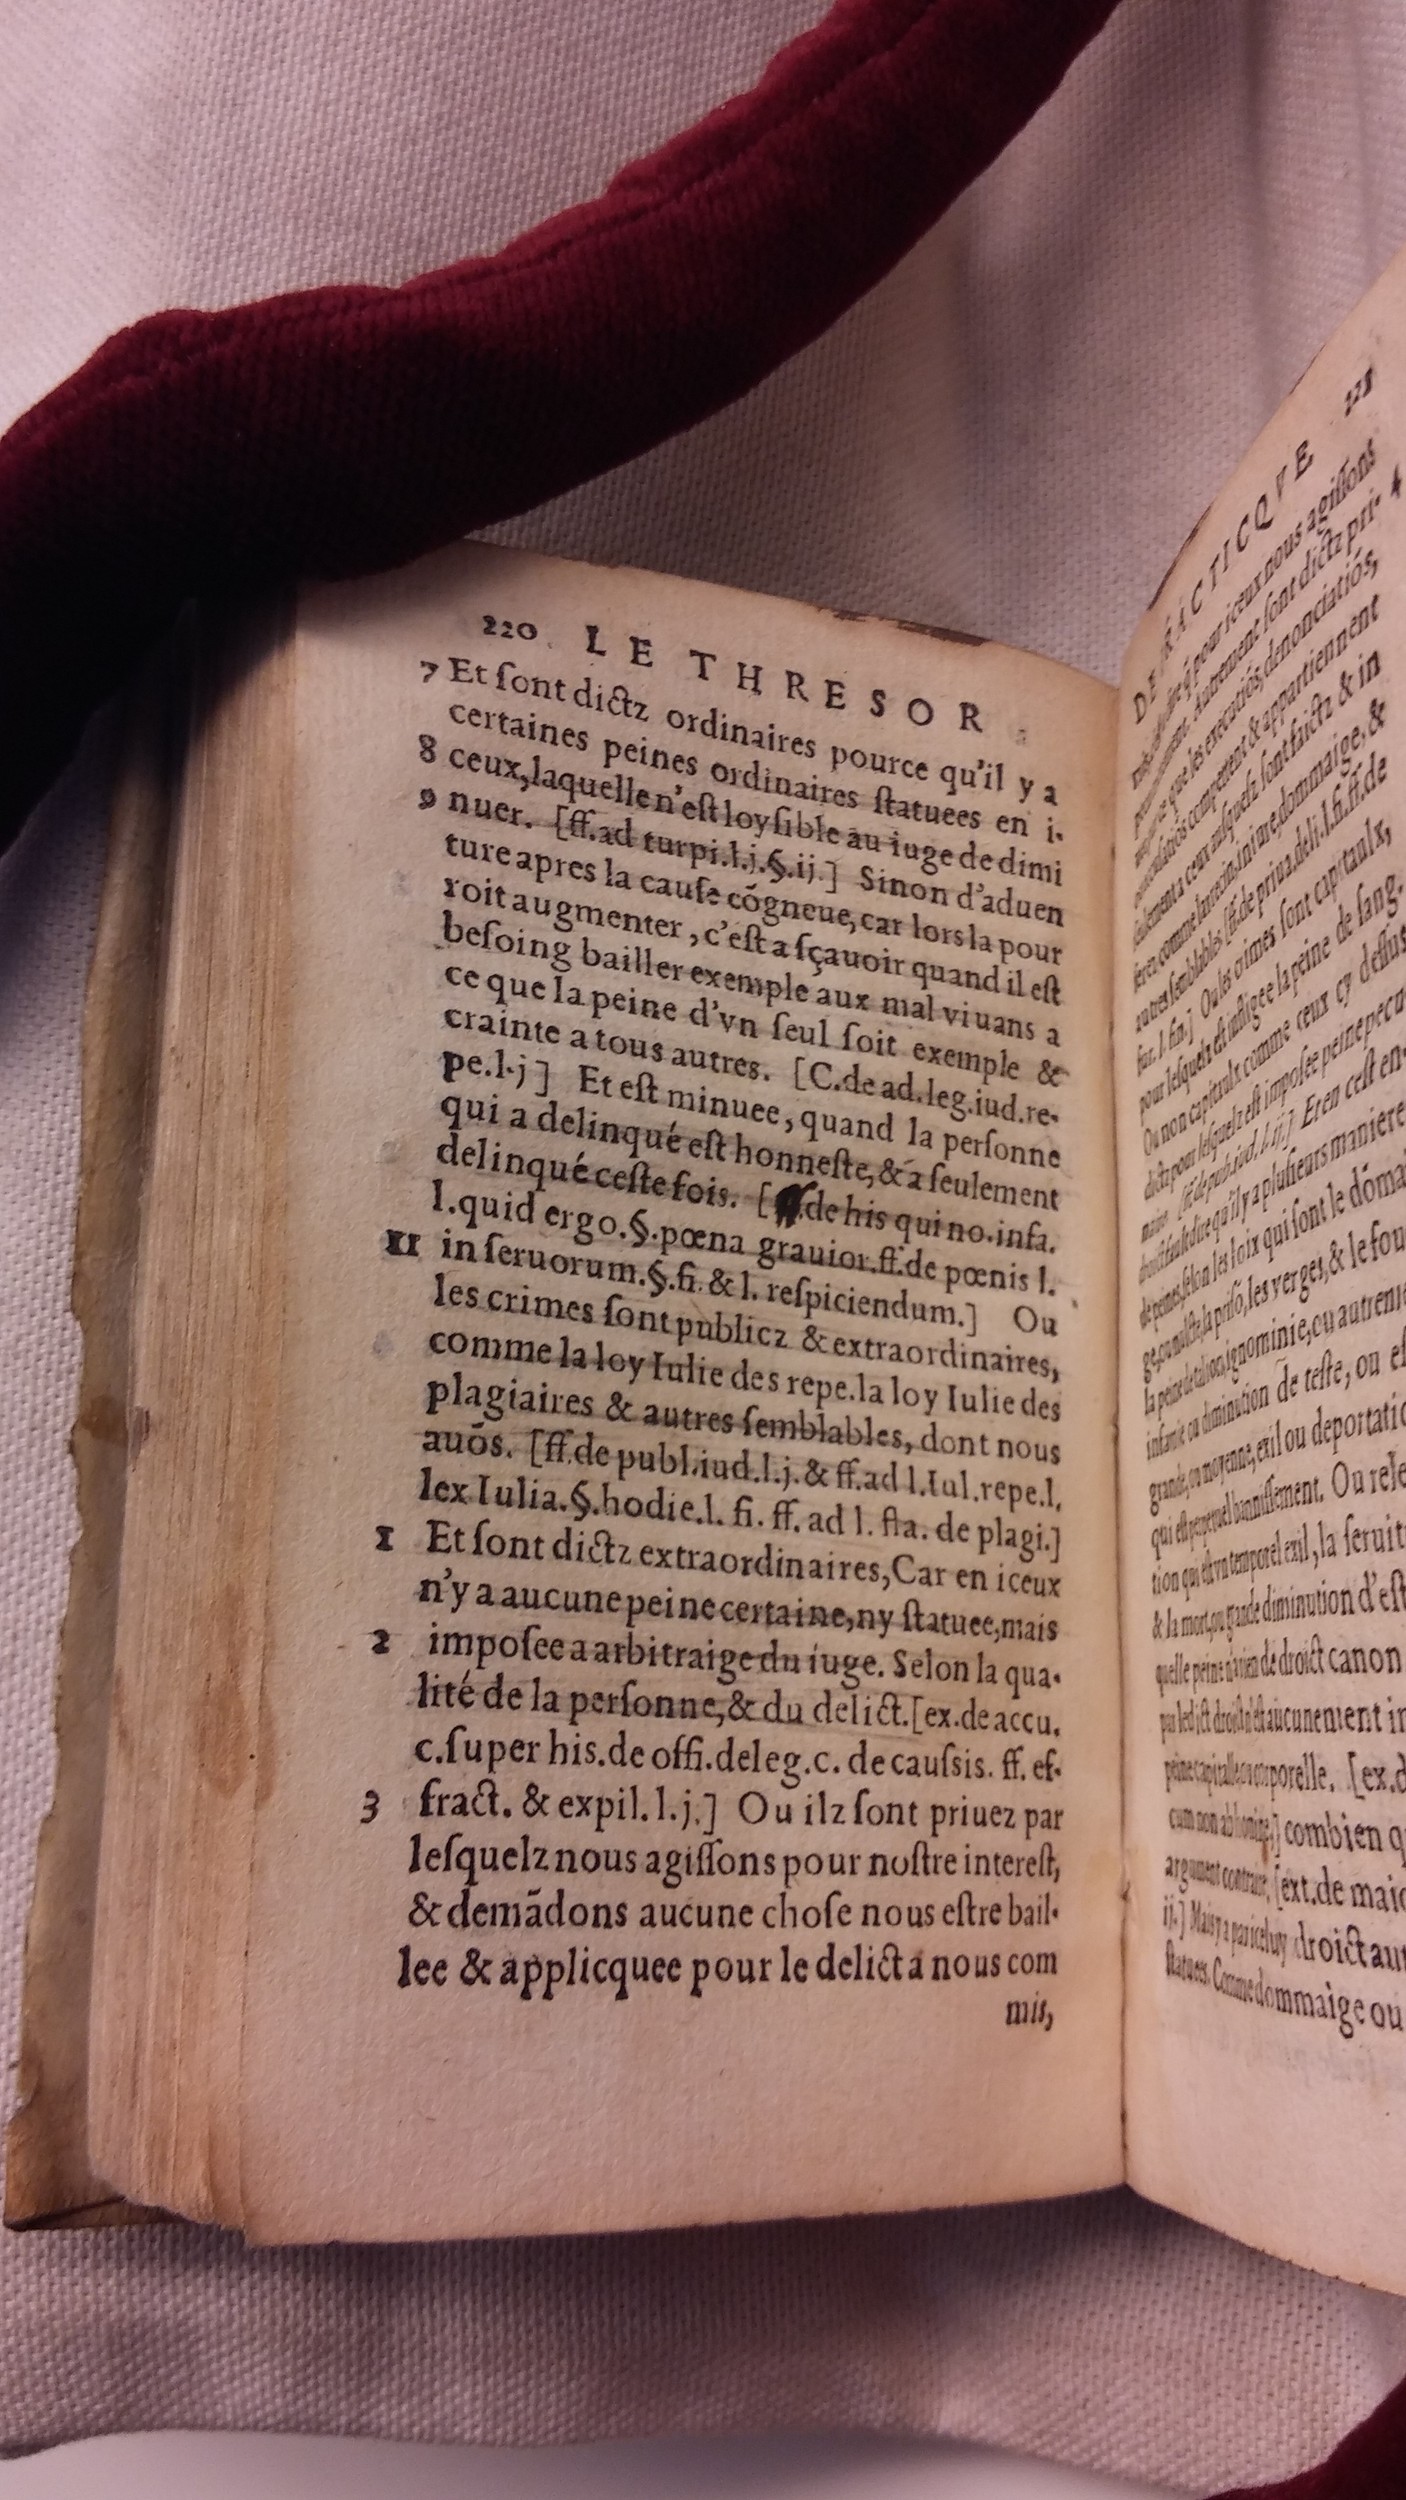 220 LE THRESOR
7 Et ſont dictz ordinaires pource qu'il y a
certaines peines ordinaires ſtatuees en i.
8 ceux, laquelle n'eſt loyſible au iuge de dimi
9 nuer. [ff. ad turpi.l.j.§.ij.] Sinon d'aduen
ture apres la cauſe cõgneue, car lors la pour
roit augmenter, c'eſt a ſçauoir quand il eſt
beſoing bailler exemple aux mal viuans a
ce que la peine d'vn ſeul ſoit exemple &
crainte a tous autres. [C.de ad.leg.iud.re-
pe.l.j] Et eſt minuee, quand la perſonne
qui a delinqué eſt honneſte, & a ſeulement
delinqué ceſte fois. [ff.de his qui no.infa.
l.quid ergo.§.pœna grauior.ff.de pœnis l.
11 in ſeruorum.§.fi. & l. reſpiciendum.] Ou
les crimes ſont publicz & extraordinaires,
comme la loy Iulie des repe.la loy Iulie des
plagiaires & autres ſemblables, dont nous
auõs. [ff.de publ.iud.l.j.& ff.ad l.Iul.repe.l.
lex Iulia.§.hodie.l. fi. ff. ad l. fla. de plagi.]
1 Et ſont dictz extraordinaires, Car en iceux
n'y a aucune peine certaine, ny ſtatuee, mais
2 impoſee a arbitraige du iuge. Selon la qua-
lité de la perſonne, & du delict. [ex.de accu.
c.ſuper his.de offi.deleg.c. de cauſsis. ff. ef-
3 fract. & expil. l.j.] Ou ilz ſont priuez par
leſquelz nous agiſſons pour noſtre intereſt,
& demãdons aucune choſe nous eſtre bail-
lee & applicquee pour le delict a nous com
mis,
DE PRACTICQVE 221
pour iceux nous agiſſons 4
Autrement ſont dictz pri-
que les executiós, denonciatiós,
competent & appartiennent
a ceux auſquelz ſont faictz & in
comme larrecin, iniure, dommaige, &
autres ſemblables [ff.de priua.deli.l.fi.ff.de
fur. l. fin.] Ou les crimes ſont capitaulx,
pour leſquelz eſt infligee la peine de ſang.
Ou non capitaulx comme ceux cy deſſus
dictz pour leſquelz eſt impoſee peine pecu
[ff.de pub.iud. l. ij.] Et en ceſt en-
qu'il y a pluſieurs maniere
de peines, ſelon les loix qui ſont le dõma
la priſõ, les verges, & le fou
la peine de talion, ignominie, ou autreme
infamie ou diminution de teſte, ou eſ
grande, ou moyenne, exil ou deportatio
qui eſt perpetuel banniſſement. Ou rele
tion qui eſt vn temporel exil, la ſeruit
& la mort, ou grande diminution d'eſt
quelle peine de droict canon
aucunement in
peine capitalle ou corporelle. [ex.d
cum non ab homine.] combien q
argument contraire, [ext.de maio
ij.] Mais y a par iceluy droict aut
ſtatuees. Comme dommaige ou